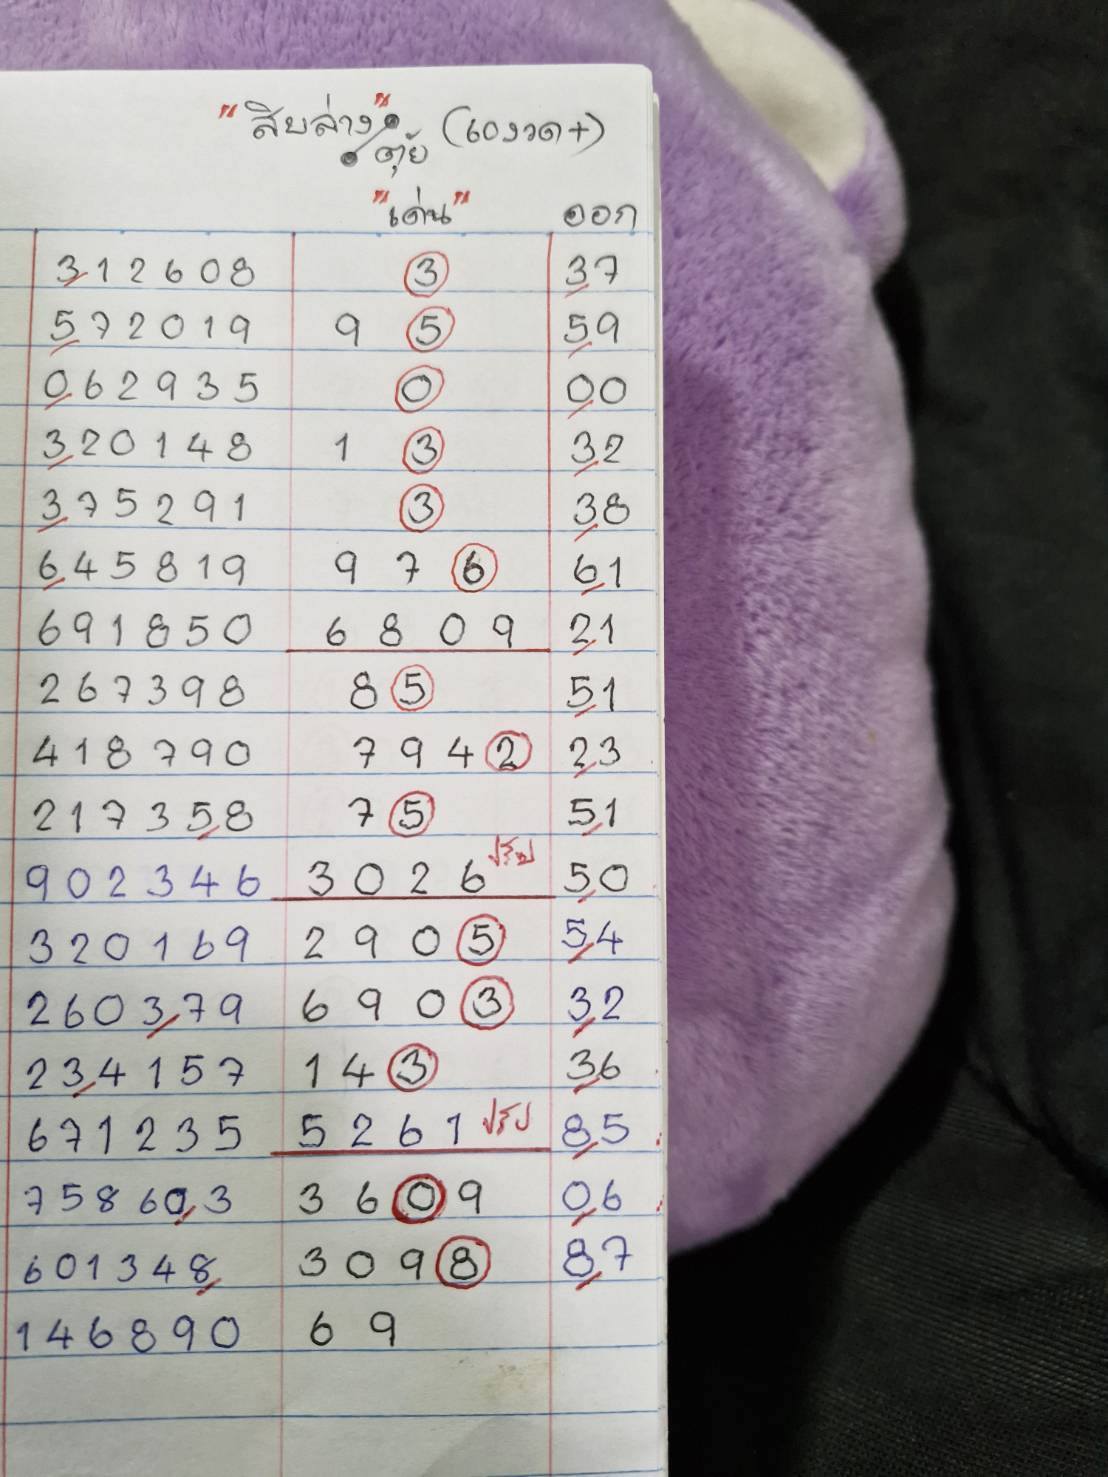 "สิบล่าง" (60งวด+)
ตุ้ย
"เด่น" ออก
312608 3 37
572019 9 5 59
062935 0 00
320148 1 3 32
375291 3 38
645819 9 7 6 61
691850 6 8 0 9 21
267398 8 5 51
418790 7 9 4 2 23
217358 7 5 51
902346 3 0 2 6 ปรับ 50
320169 2 9 0 5 54
260379 6 9 0 3 32
234157 1 4 3 36
671235 5 2 6 1 85
758603 3 6 0 9 06
601348 3 0 9 8 87
146890 6 9